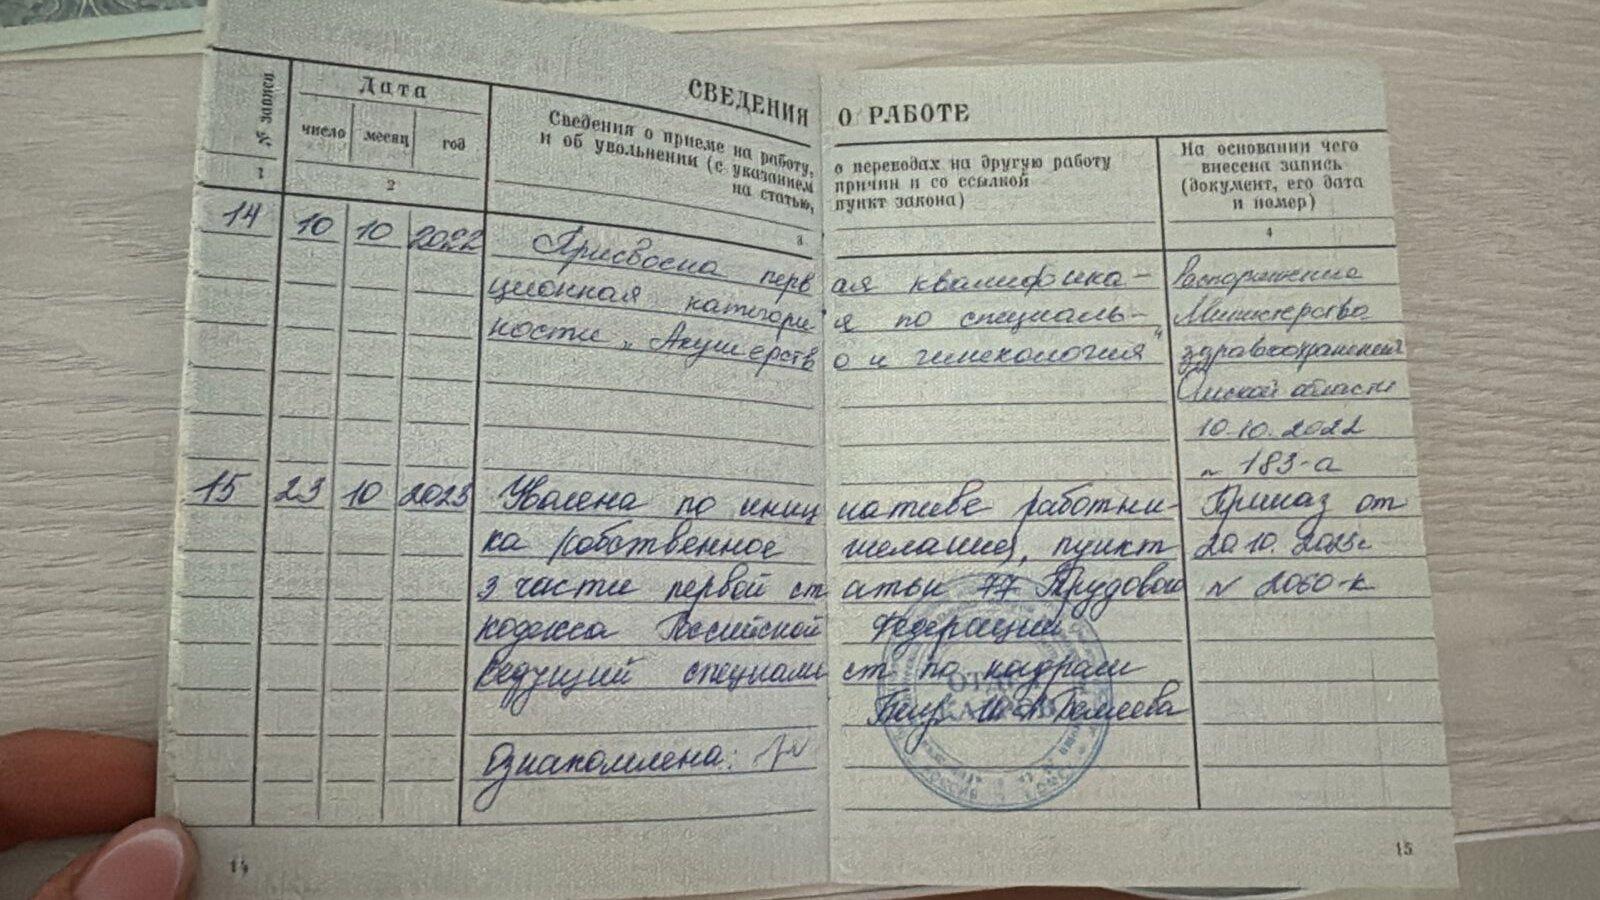 СВЕДЕНИЯ О РАБОТЕ
№ записи
Дата
число месяц год
Сведения о приеме на работу, о переводах на другую работу
и об увольнении (с указанием причин и со ссылкой
на статью, пункт закона)
На основании чего
внесена запись
(документ, его дата
и номер)
1 2 3 4
14 10 10 2022 Присвоена первая квалифика- Распоряжение
ционная категория по специаль- Министерства
ности „Акушерство и гинекология“ здравоохранения
Омской области
10.10.2022
№ 183-а
15 23 10 2023 Уволена по инициативе работни- Приказ от
ка (собственное желание), пункт 20.10.2023г
3 части первой статьи 77 Трудового № 2060-к
кодекса Российской Федерации
Ведущий специалист по кадрам
ОТДЕЛ
КАДРОВ
Ознакомлена:
14
15